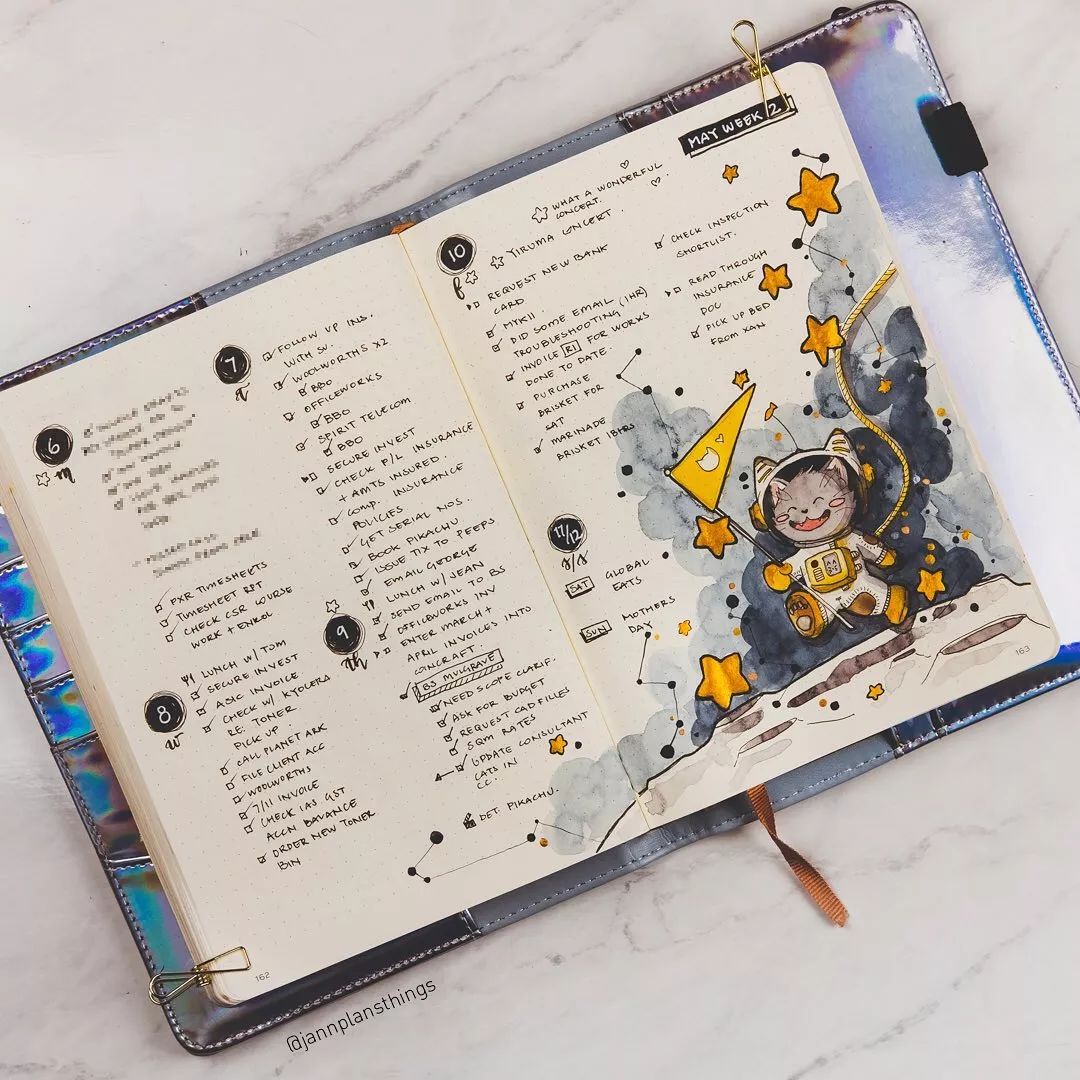 6
M
PXR TIMESHEETS
TIMESHEET RPT
CHECK CSR COURSE
WORK + ENROL
7
T
FOLLOW UP INS.
WITH SW.
WOOLWORTHS X2
BBO
OFFICEWORKS
BBO
SPIRIT TELECOM
BBO
SECURE INVEST
CHECK P/L INSURANCE
+ AMTS INSURED.
COMP. INSURANCE
POLICIES
GET SERIAL NOS.
BOOK PIKACHU
ISSUE TIX TO PEEPS
EMAIL GEORGE
8
W
LUNCH W/ TOM
SECURE INVEST
ASIC INVOICE
CHECK W/ KYOCERA
RE: TONER
PICK UP
CALL PLANET ARK
FILE CLIENT ACC
WOOLWORTHS
7/11 INVOICE
CHECK IAS GST
ACCN BAVANCE
ORDER NEW TONER
BIN
9
Th
LUNCH W/ JEAN
SEND EMAIL TO BS
OFFICEWORKS INV
ENTER MARCH +
APRIL INVOICES INTO
COINCRAFT.
B3 MULGRAVE
NEED SCOPE CLARIF.
ASK FOR BUDGET
REQUEST CAD FILES
SQM RATES
UPDATE CONSULTANT
CATS IN
CC.
DET. PIKACHU.
162
MAY WEEK 2
10
F
WHAT A WONDERFUL
CONCERT.
YIRUMA CONCERT.
REQUEST NEW BANK
CARD
MYKII
DID SOME EMAIL (1HR)
TROUBLESHOOTING
INVOICE R1 FOR WORKS
DONE TO DATE.
PURCHASE
BRISKET FOR
SAT
MARINADE
BRISKET 18HRS
CHECK INSPECTION
SHORTLIST.
READ THROUGH
INSURANCE
DOC
PICK UP BED
FROM XAN
11/12
S/S
SAT GLOBAL
EATS
SUN MOTHERS
DAY
163
@jannplansthings